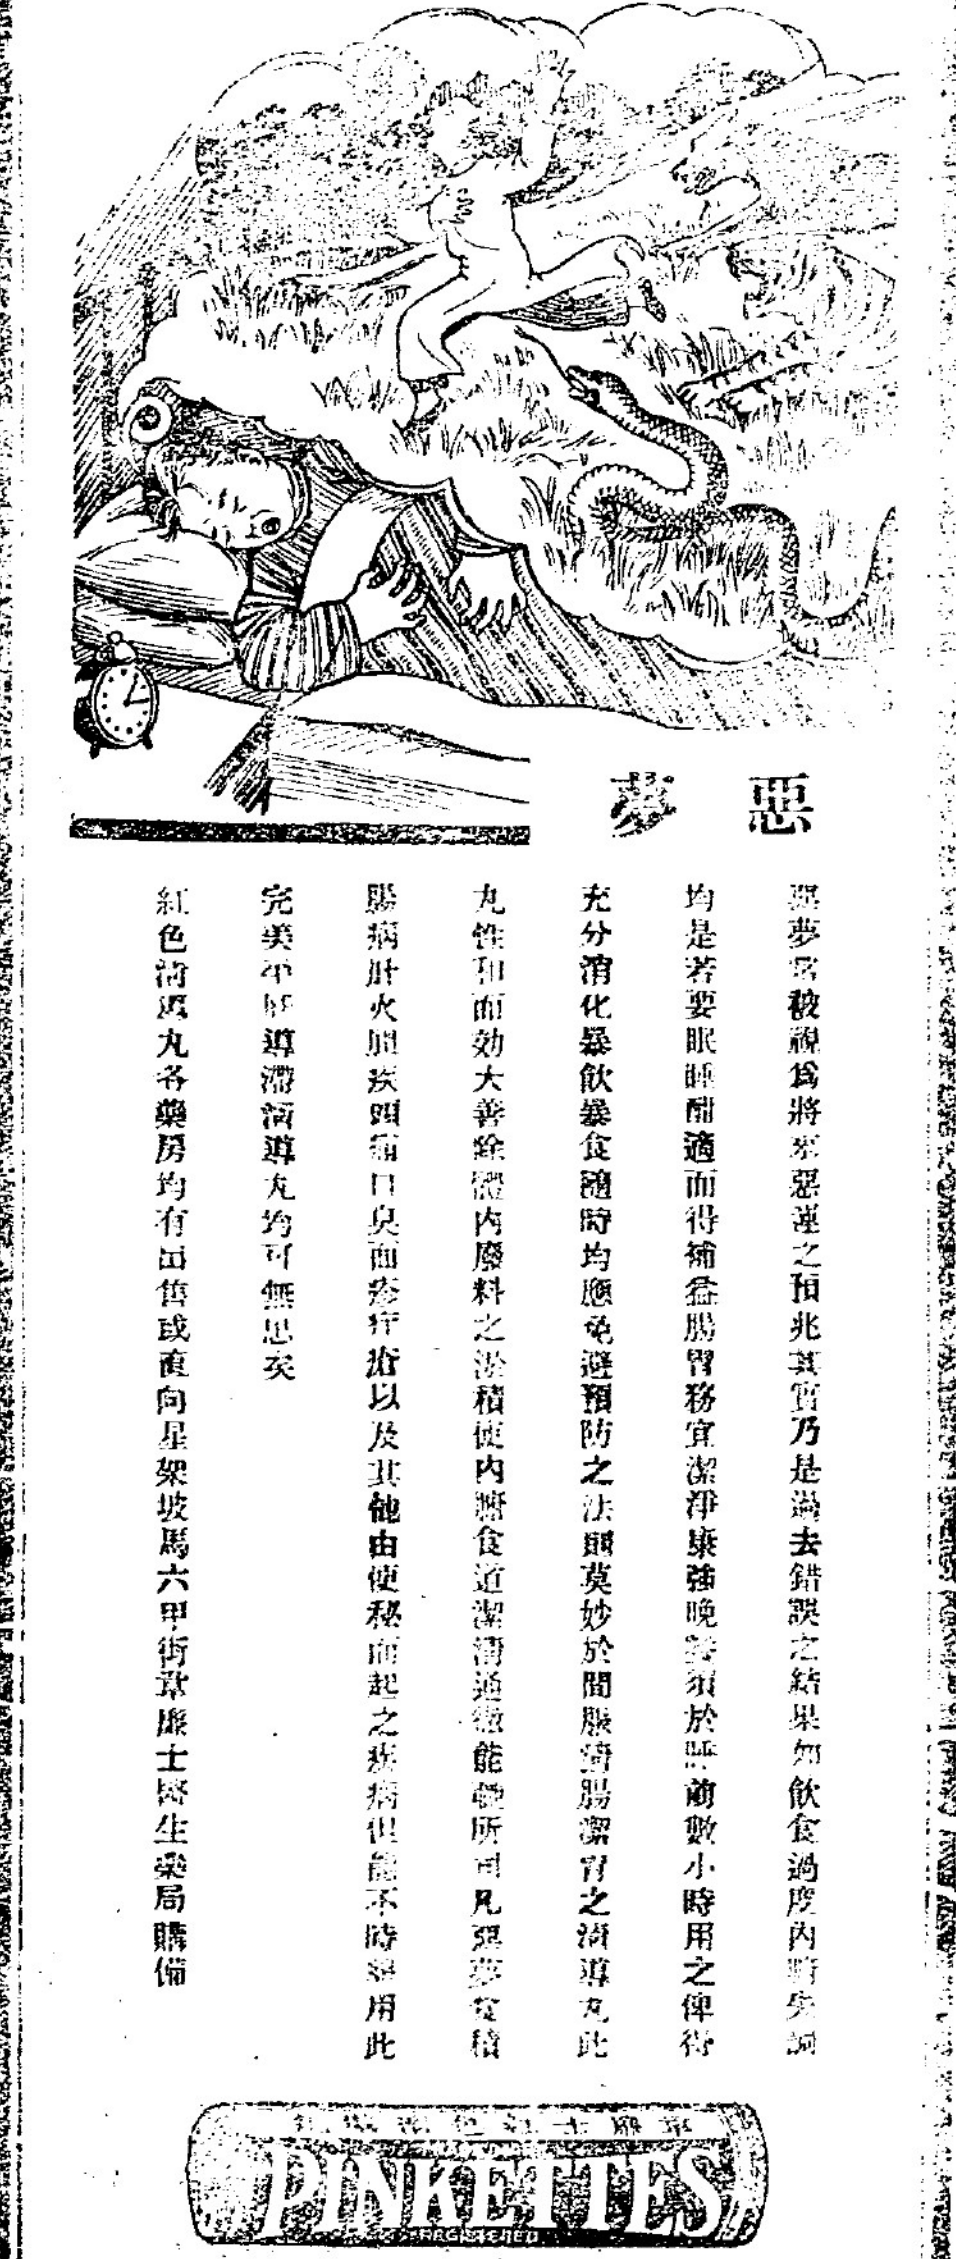 惡夢
惡夢常被視爲將來惡運之預兆其實乃是過去錯誤之結果如飲食過度內臟失調
均是若要眠睡酣適而得補益腸胃務宜潔淨康強晚餐須於睡前數小時用之俾得
充分消化暴飲暴食隨時均應免避預防之法則莫妙於間服清腸潔胃之清導丸此
丸性和而効大善除體內廢料之淤積使內臟食道潔清通徹能盡所司凡惡夢食積
腸病肝火胆疾頭痛口臭面疹疔瘡以及其他由便秘而起之疾病但能不時服用此
完美平肝導滯清導丸均可無思矣
紅色清導丸各藥房均有出售或直向星架坡馬六甲街韋廉士醫生藥局購備
PINKETTES
REGISTERED